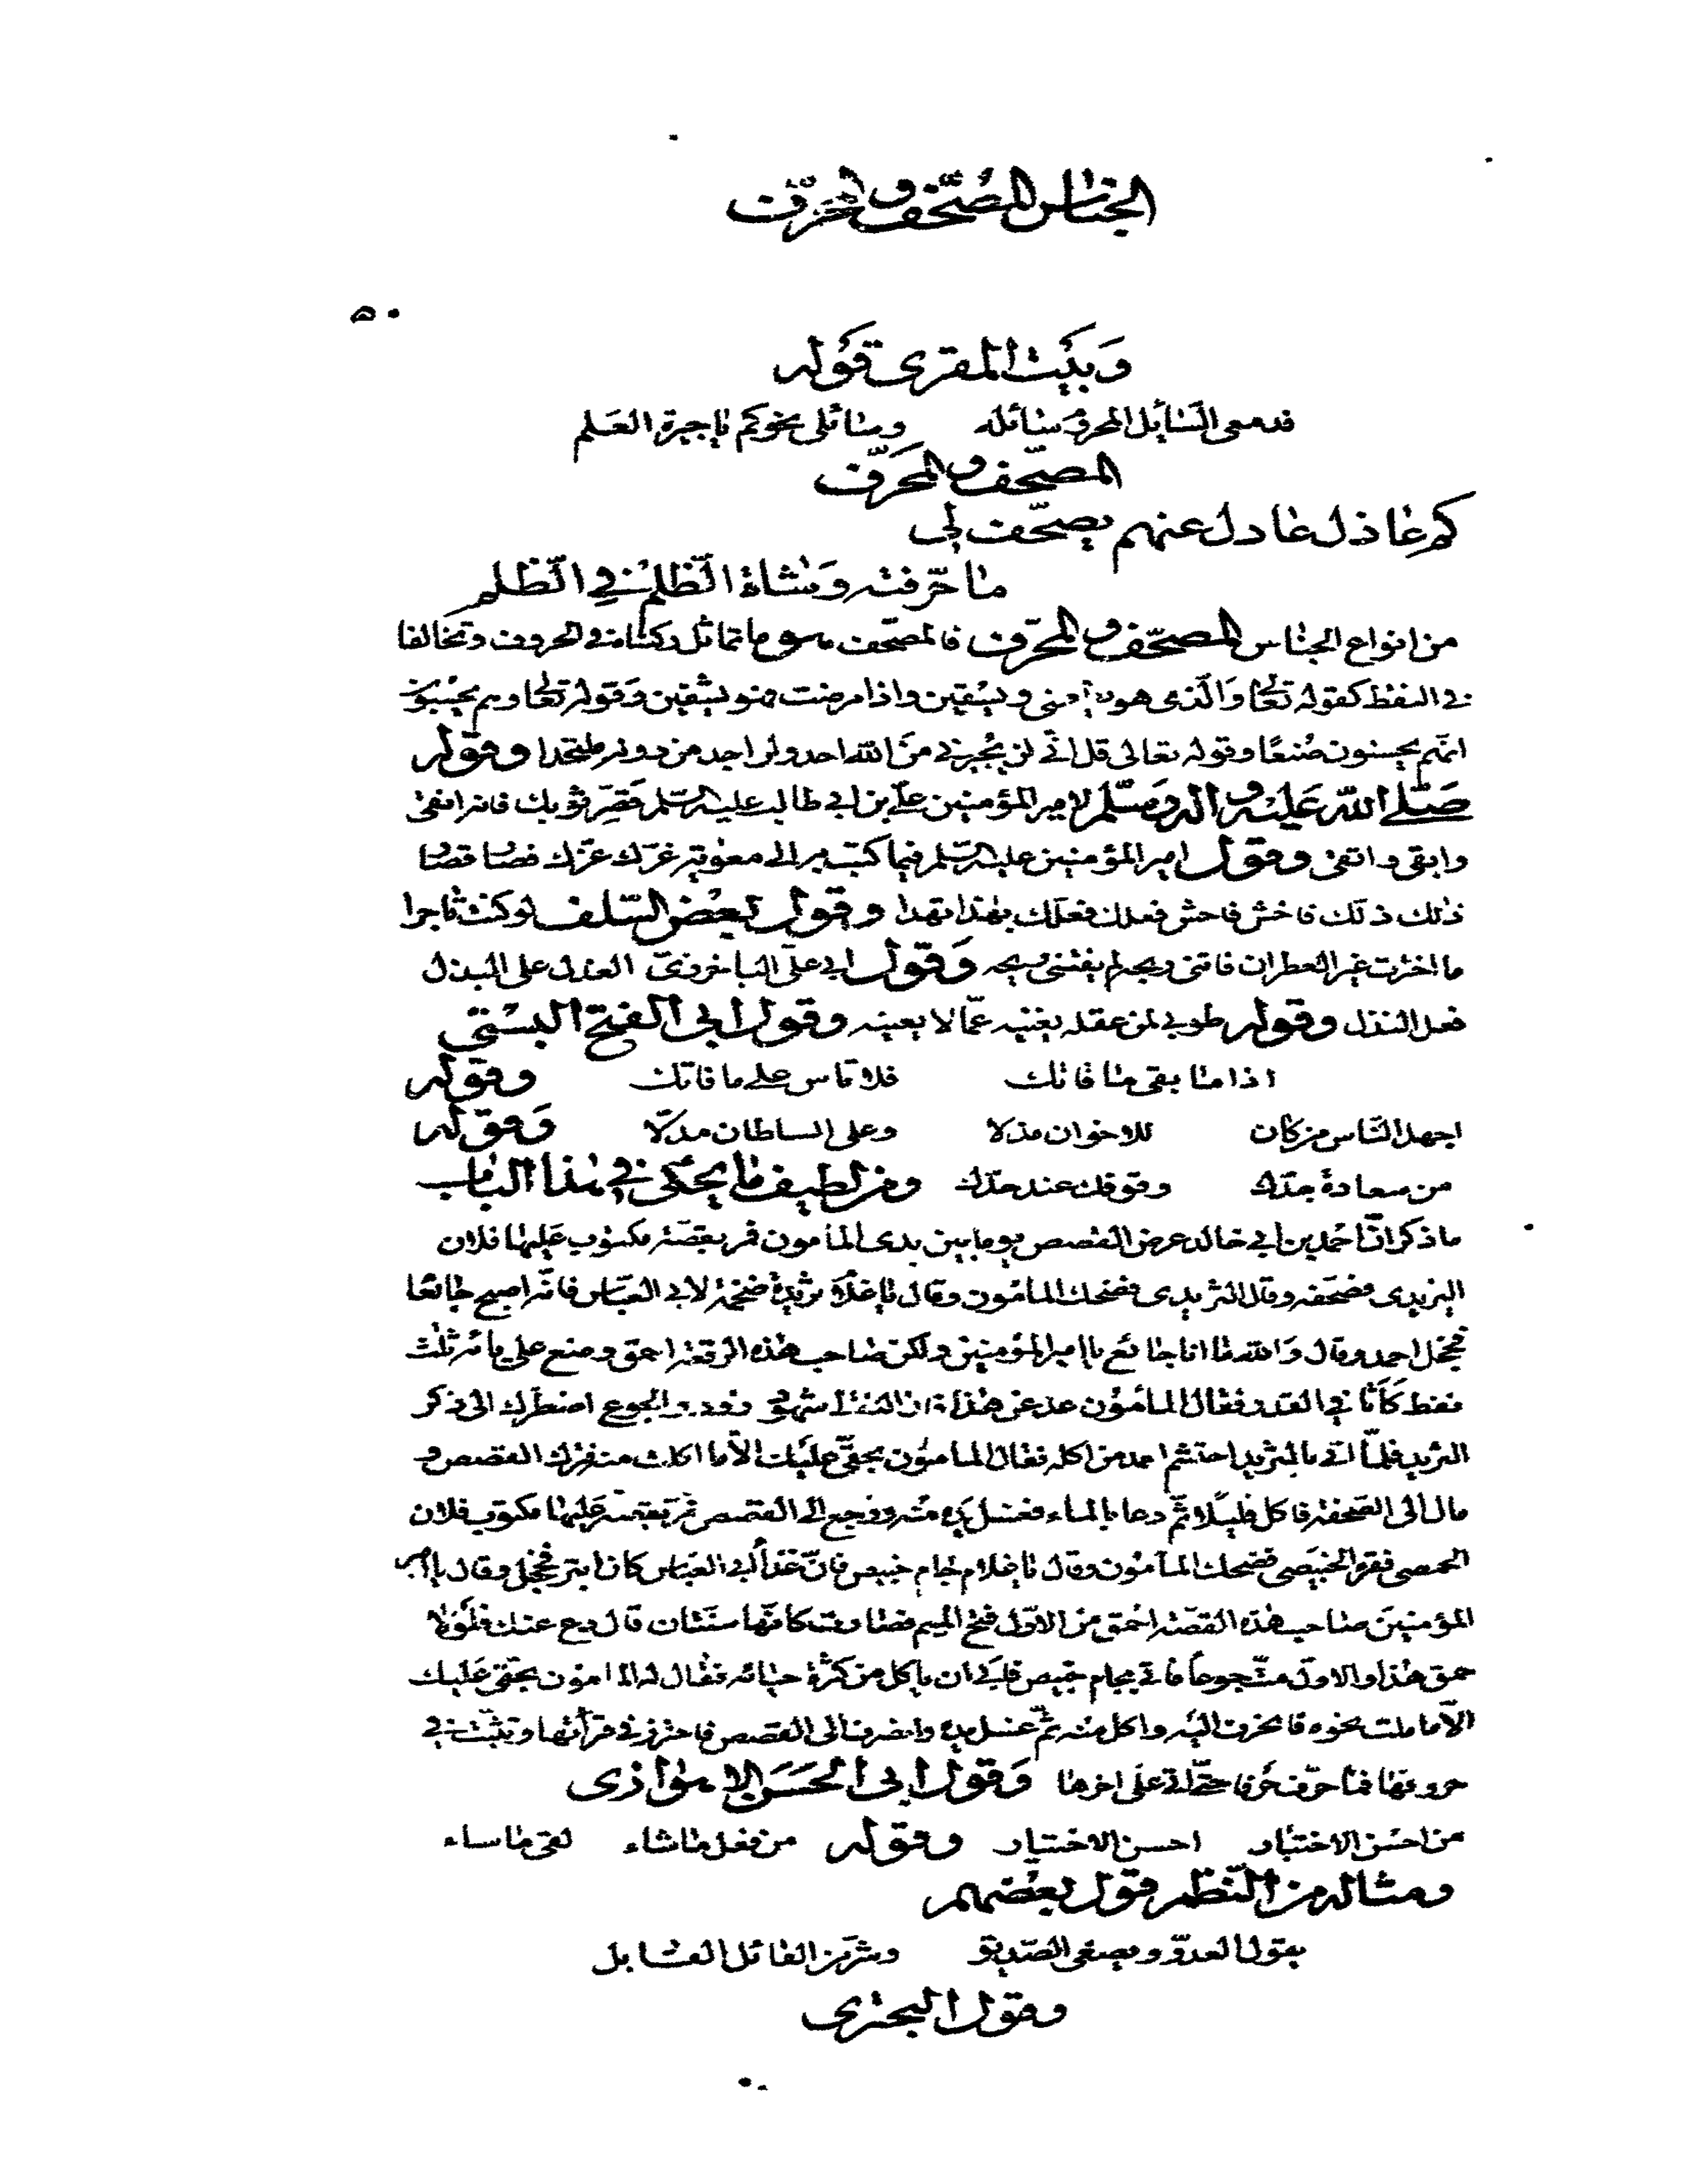 الجناس المصحّف والمحرّف
٥٠
وبيت المقرى قوله
قد معى السّائل المحرف سائله ومائلى نحوكم يا جيرة العلم
المصحّف والمحرّف
كم عاذل عادل عنهم يصحّف لى
ما حرّفته وشاة الظلم فى الظلم
من انواع الجناس المصحّف والمحرّف فالمصحّف ما تماثل ركناه فى الحروف وتخالفا
فى النقط كقوله تعالى والّذى هو يطعمنى ويسقين واذا مرضت فهو يشفين وقوله تعالى وهم يحسبون
انّهم يحسنون صنعًا وقوله تعالى قل انّى لن يجيرنى من الله احد ولن اجد من دونه ملتحدا وقوله
صلى الله عليه واله وسلّم لامير المؤمنين علىّ بن ابى طالب عليه السّلم قصّر ثوبك فانه انقى
وابقى واتقى وقول امير المؤمنين عليه السّلم فيما كتب به الى معوية غرّك عزّك فصار قصار
ذلك ذلك فاخش فاحش فعلك فعلّك بهذا تهدا وقول بعض السّلف لو كنت تاجرا
ما اخترت غير العطر ان فاتنى ربحه لم يفتنى ريحه وقول ابى علىّ الباخرزى العذل على البذل
فعل النذل وقوله طوبى لمن عقله يغنيه عمّا لا يعينه وقول ابى الفتح البستى
اذا ما بقى ما فاتك فلا تاس على ما فاتك وقوله
اجهد الناس من كان للاخوان مذلا وعلى السلطان مدلا وقوله
من سعادة جدّك وقوفك عند حدّك ومن لطيف ما يحكى فى هذا الباب
ما ذكر انّ احمد بن ابى خالد عرض القصص يوما بين يدى المأمون فمر بقصّة مكتوب عليها فلان
اليزيدى فصحّفه وقال الثريدى فضحك المأمون وقال يا غلام ثريدة ضخمة لابى العبّاس فانّه اصبح جائعا
فخجل احمد وقال والله ما انا جائع يا امير المؤمنين ولكن صاحب هذه الرقعة احمق وضع على يائه ثلث
نقط كأنّا فى القدر فقال المأمون عد عن هذا والجوع اضطرك الى ذكر
الثريد فلمّا اتى بالثريد احتشم احمد من اكله فقال المأمون بحقّى عليك الّا ما اكلت منه فترك القصص و
مال الى الصّحفة فاكل قليلًا ثمّ دعا بالماء فغسل يده منه ورجع الى القصص فمر بقصّة عليها مكتوب فلان
الحمصى فقرا الخبيصى فضحك المأمون وقال يا غلام جام خبيص فانّ غدأ ابى العبّاس كان ابتر فخجل وقال يا امير
المؤمنين صاحب هذه القصّة احمق من الاوّل فتح الميم فصارت كانّها سنتان قال دع عنك فلولا
حمق هذا والاوّل متّ جوعا فاتى بجام خبيص فابى ان ياكل من كثرة حيائه فقال له المأمون بحقّى عليك
الّا ما ملت نحوه فانحرف اليه واكل منه ثمّ غسل يده وانصرف الى القصص فاحترز فى قرأتها وتثبّت فى
حروفها فما حرّف حرفا حتّى اتى على اخرها وقول ابى الحسن الاهوازى
من احسن الاختبار احسن الاختيار وقوله من فعل ما شاء لقى ما ساء
ومثاله من النّظم قول بعضهم
يقول العدوّ ويصغى الصّديق وشرّ من القائل القابل
وقول البحترى